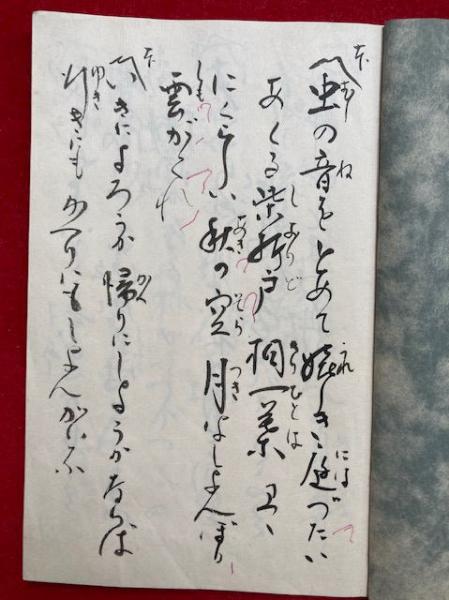 〽虫の音をとめて嬉しき庭づたい
あくる柴折戸桐一葉 ヱヽ
にくらしい秋の空月はしよんぼり
雲がくれ
〽いきによろうか帰りにしようかならば
行きにもかへりにもしよんがいな